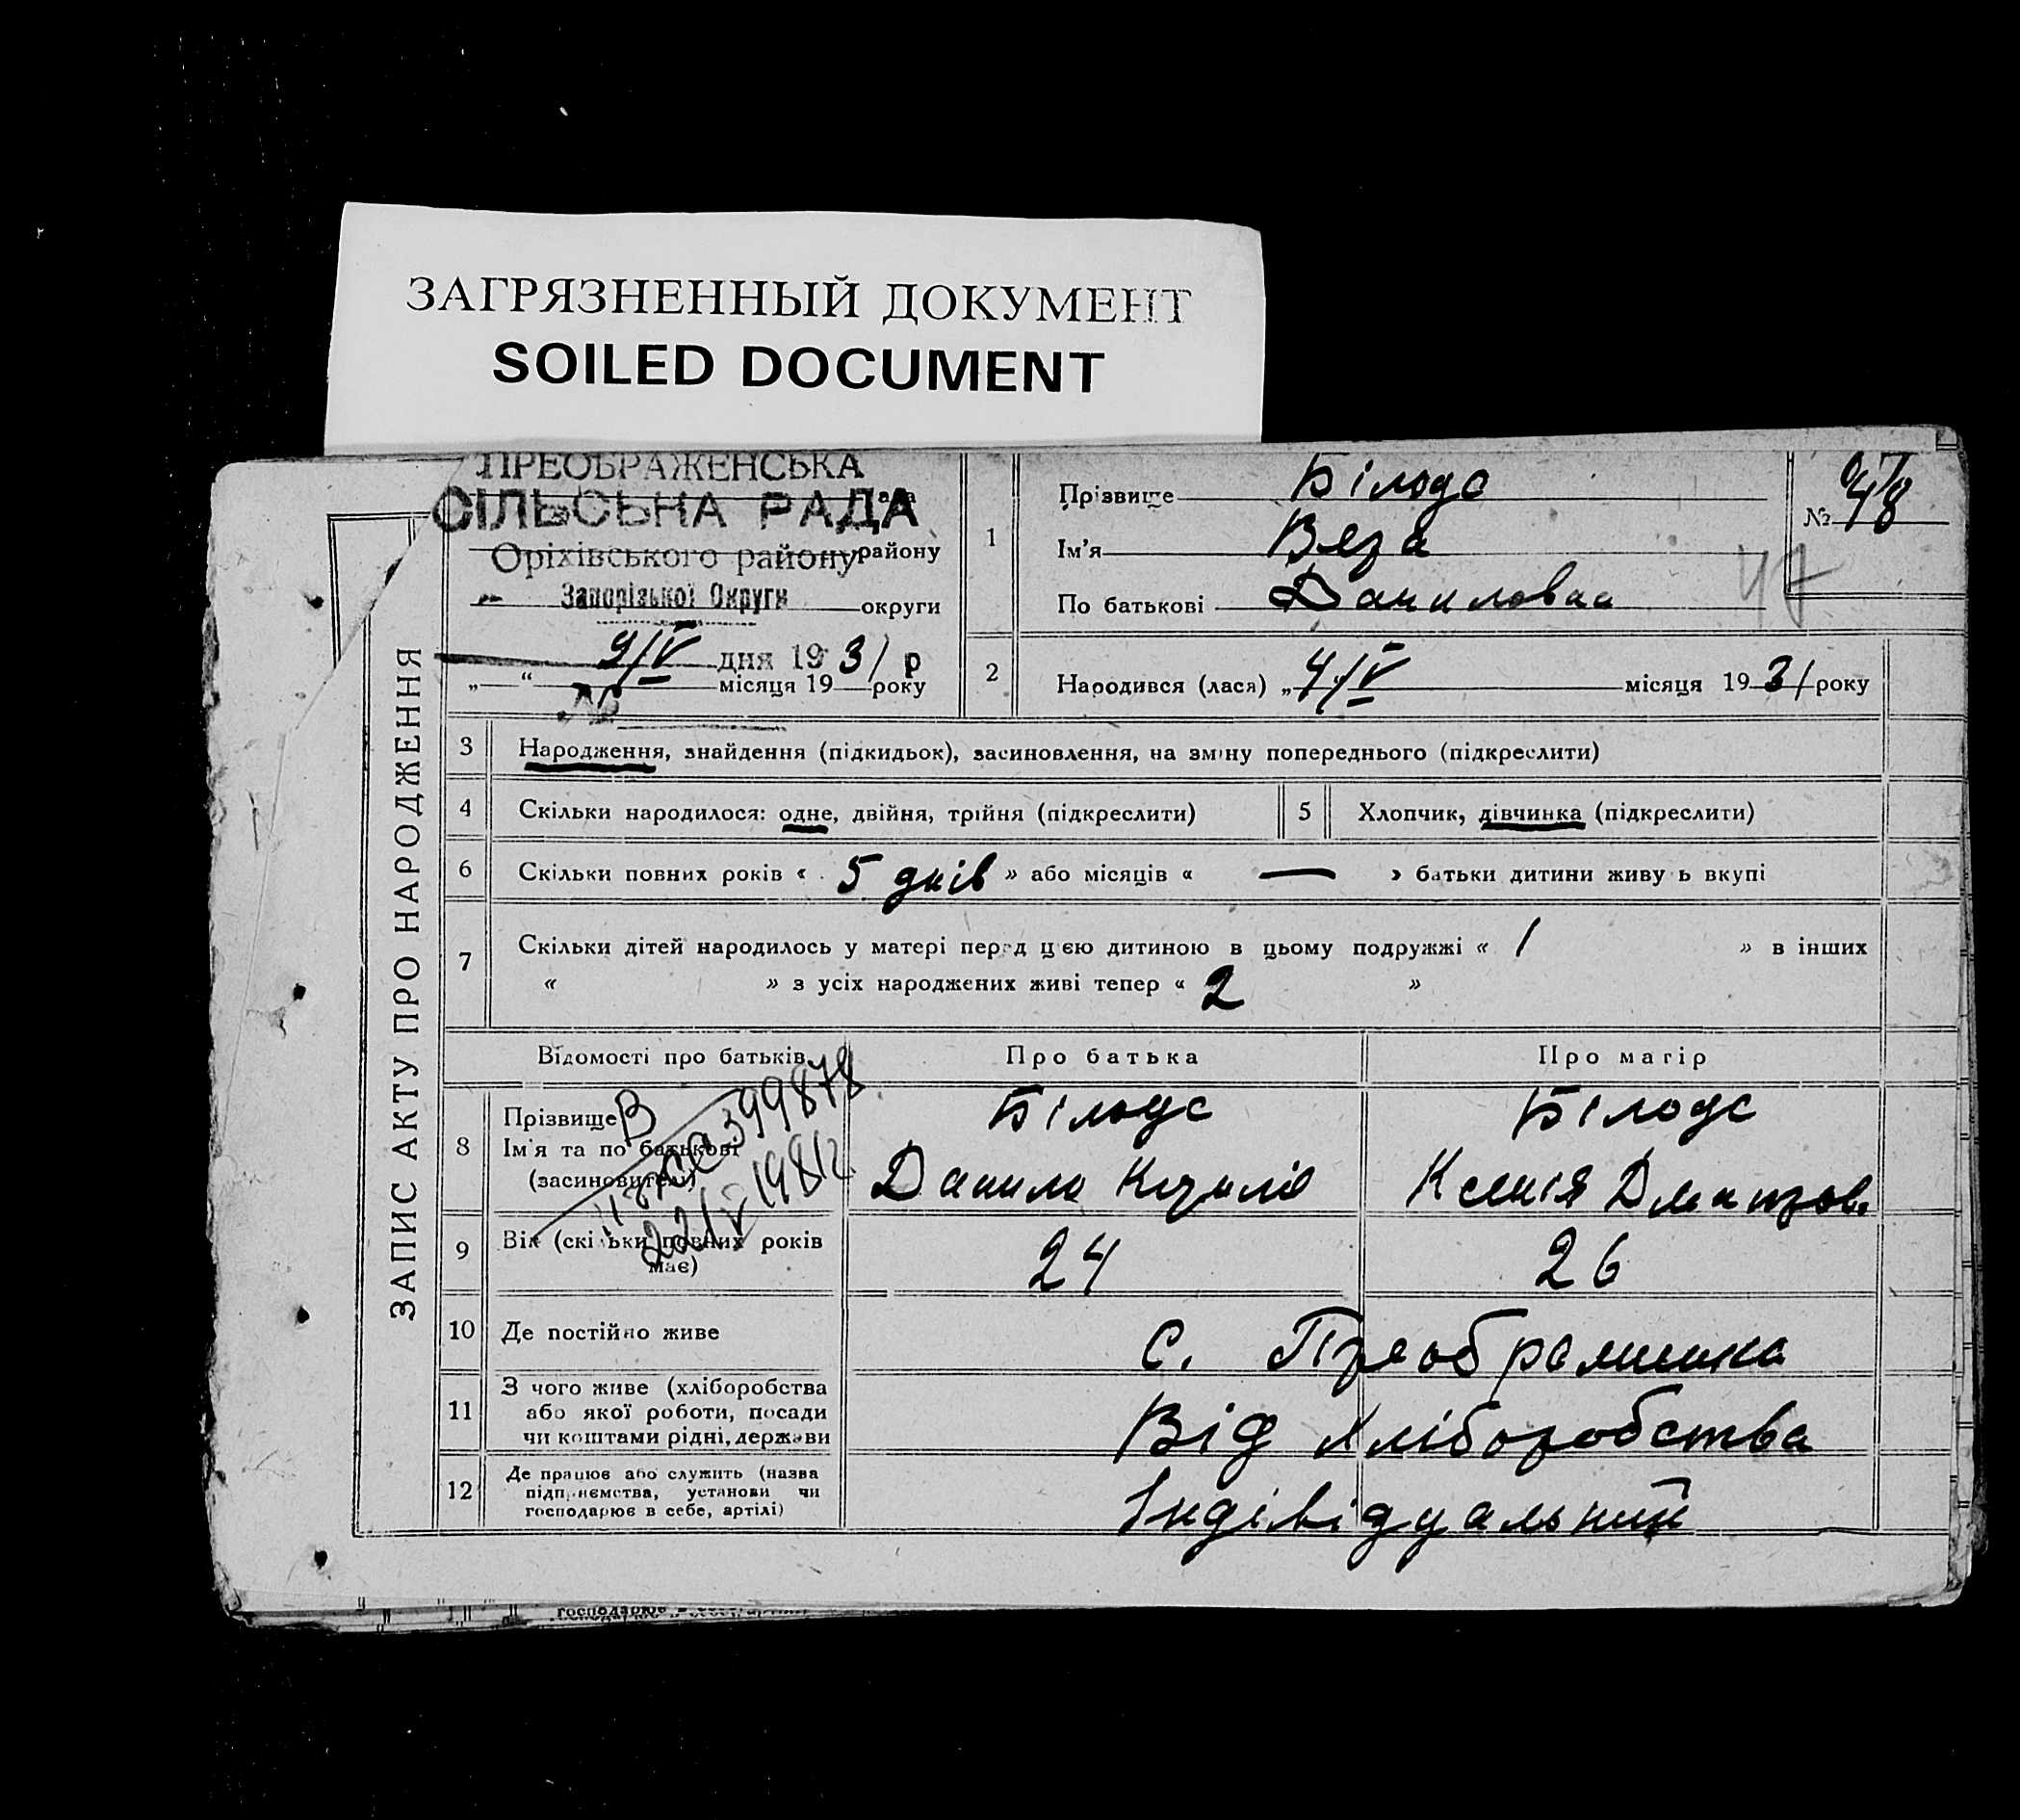 ЗАГРЯЗНЕННЫЙ ДОКУМЕНТ
SOILED DOCUMENT
ПРЕОБРАЖЕНСЬКА
СІЛЬСЬКА РАДА
Оріхівського району району
Запорізької Округи округи
9/V дня 1931 р
„—“ місяця 19 року
ЗАПИС АКТУ ПРО НАРОДЖЕННЯ
1 Прізвище Білодс
Ім'я Вера
По батькові Даниловна
№ 48
47
2 Народився (лася) „4/V місяця 1931 року
3 Народження, знайдення (підкидьок), засиновлення, на зміну попереднього (підкреслити)
4 Скільки народилося: одне, двійня, трійня (підкреслити)
5 Хлопчик, дівчинка (підкреслити)
6 Скільки повних років « 5 днів » або місяців « — » батьки дитини живу ь вкупі
7 Скільки дітей народилось у матері перед цією дитиною в цьому подружжі « 1 » в інших
« » з усіх народжених живі тепер « 2 »
Відомості про батьків Про батька Про матір
8 Прізвище Білодс Білодс
Ім'я та по батькові
(засиновителі) Данило Кирилів Ксенія Дмитров.
399878
22/V 1981г.
9 Вік (скільки повних років має) 24 26
10 Де постійно живе с. Преображенка
11 З чого живе (хліборобства
або якої роботи, посади
чи коштами рідні, держави Від хліборобства
12 Де працює або служить (назва
підприємства, установи чи
господарює в себе, артілі) Індівідуальний